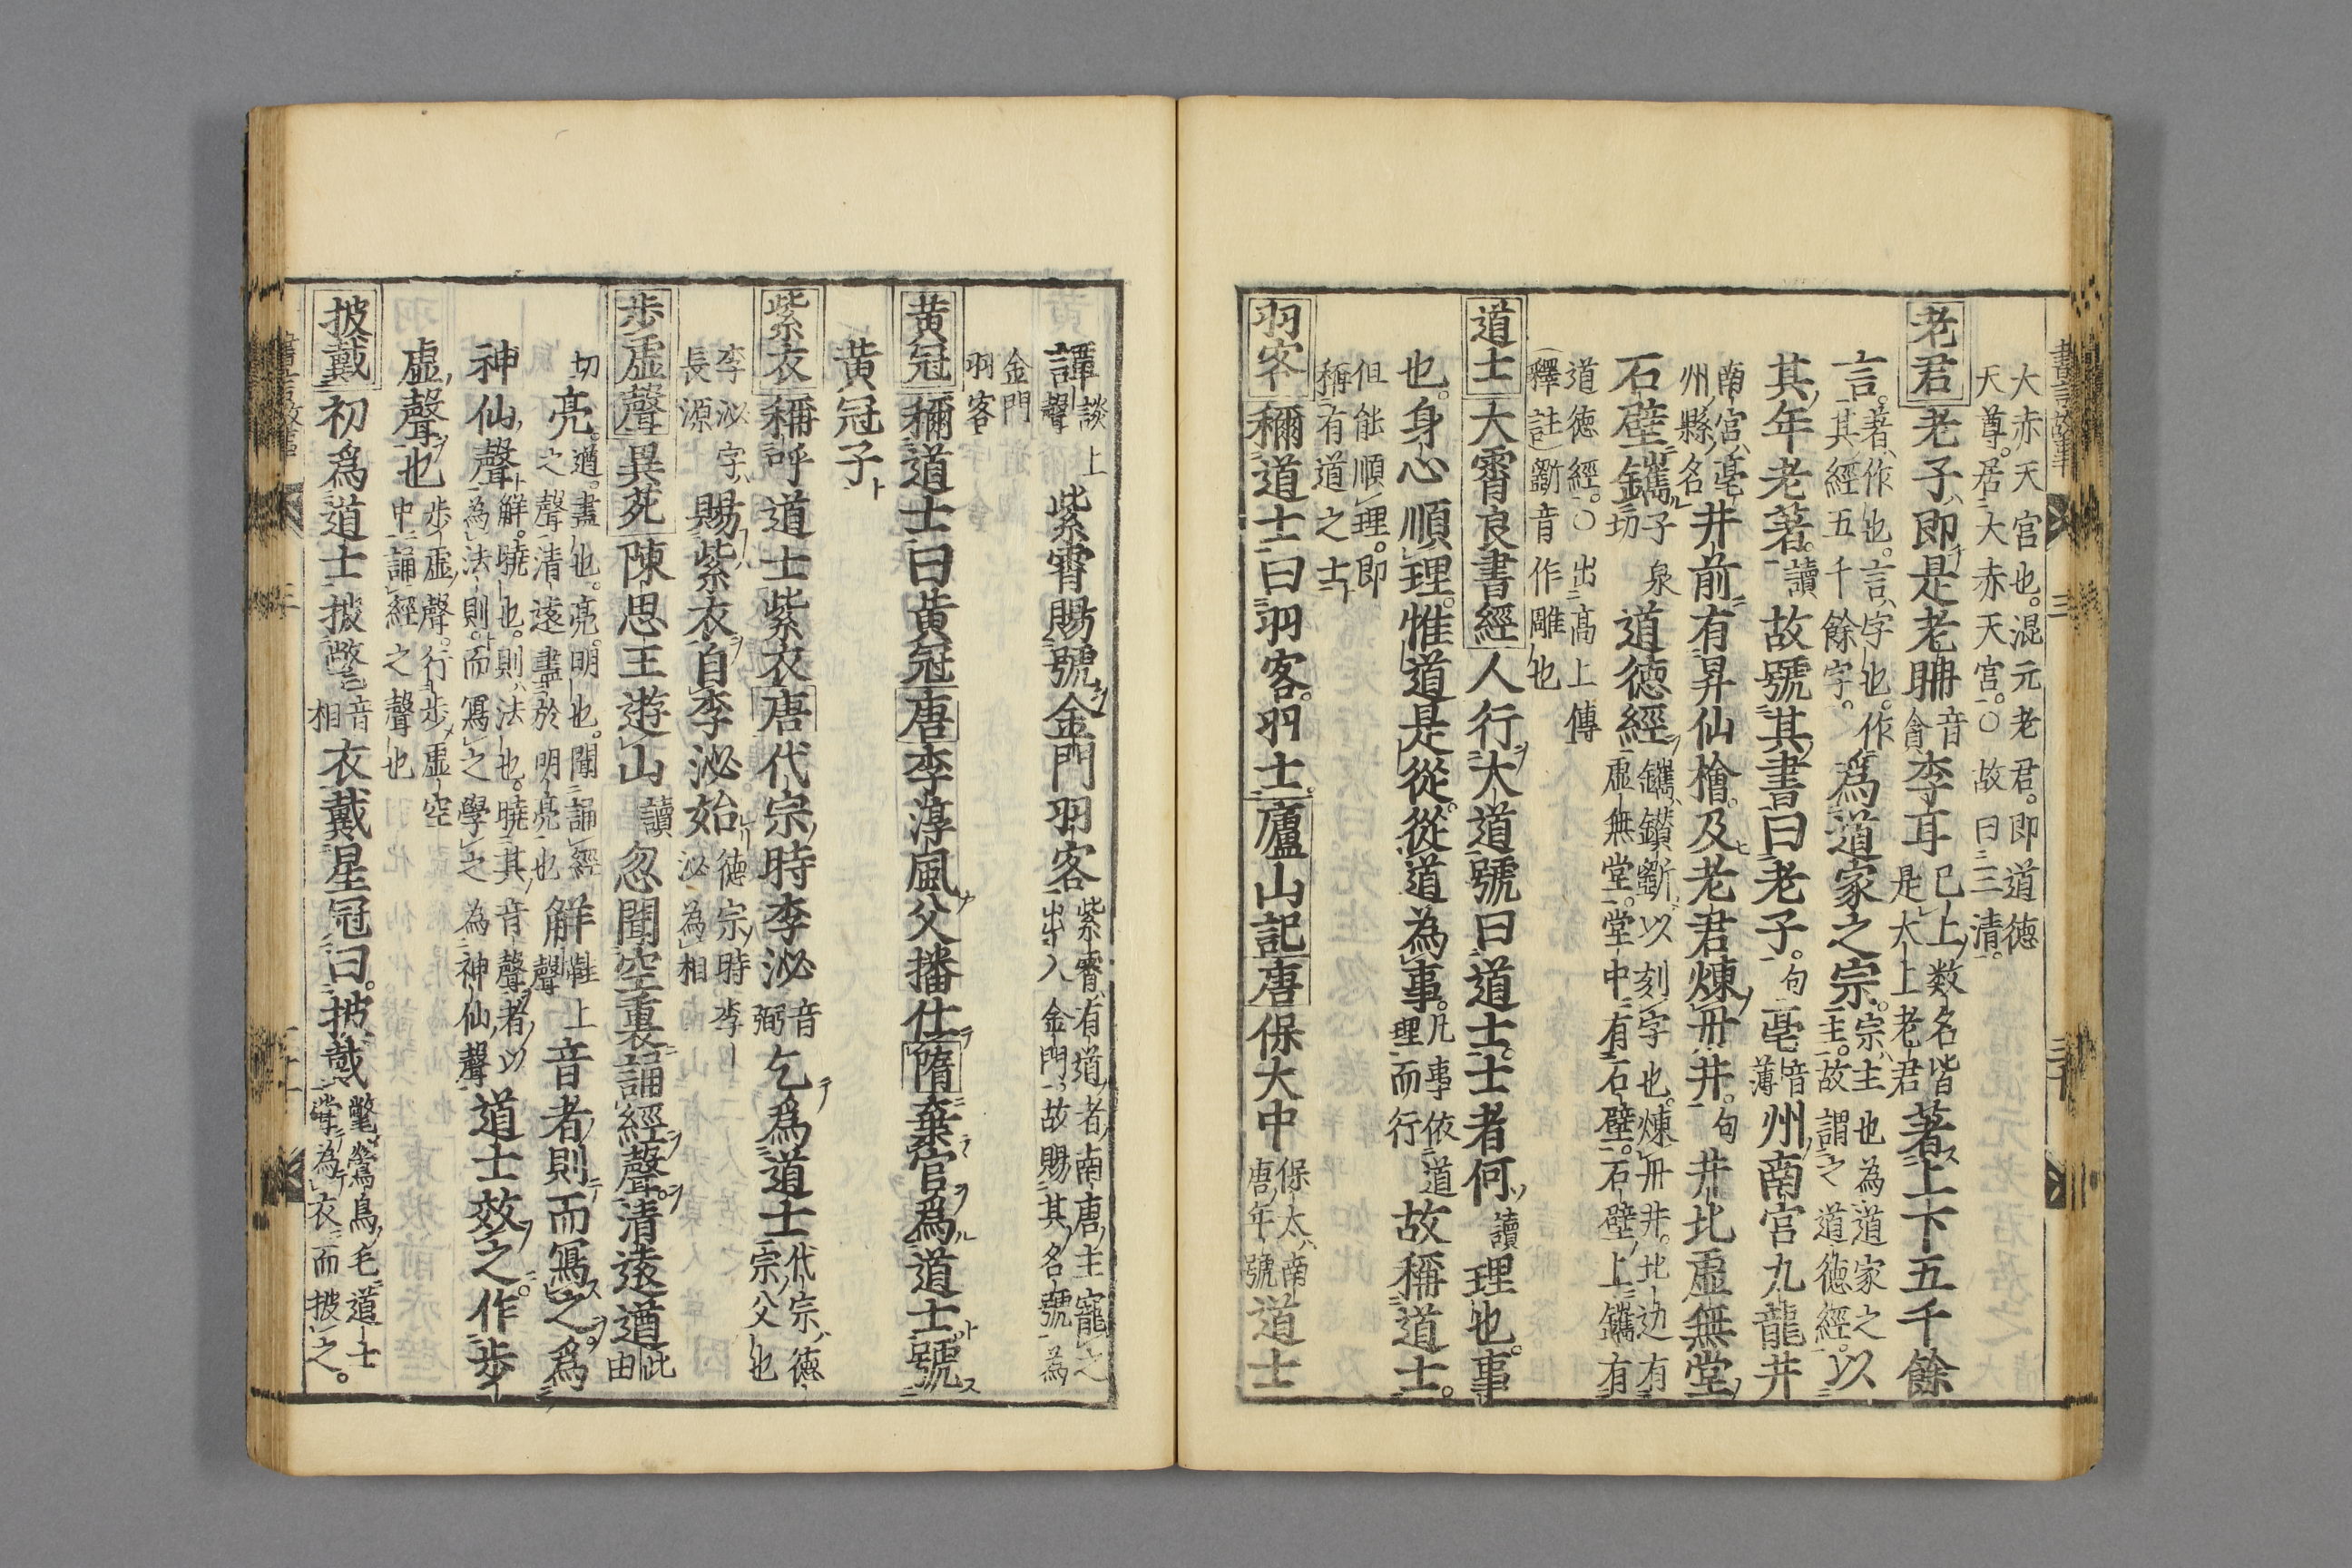 大赤天宮也。混元老君。即道德
天尊。居大赤天宮。〇故曰三清。
老君 老子即是老聃 音貪 李耳 已上数名皆是太上老君 著上下五千餘
言。著作也。言字也。作其經五千餘字。 為道家之宗。宗主也為道家之主。故謂之道德經。以
其年老著。讀 故號其書曰老子。句 亳音薄州南宮九龍井
南宮亳州縣名 井前有昇仙檜。及老君煉丹井。句 井北虛無堂
石壁鑴子泉切 道德經 鑴鑽斵以刻字也。煉丹井。北边有虛無堂。堂中有石壁。石壁上鑴有
道德經。〇出高上傳
釋註 斵音作雕也
道士 大霄良書經 人行大道號曰道士。士者何 讀 理也。事
也。身心順理。惟道是從。從道為事。凡事依道理而行 故稱道士。
但能順理。即
稱有道之士
羽客 稱道士曰羽客。羽士。廬山記 唐 保大中 保太南唐年號 道士
譚談上聲 紫霄賜號金門羽客 紫霄有道者南唐主寵之出入金門。故賜其名號為
金門
羽客
黃冠 稱道士曰黃冠 唐 李淳風父播仕隋棄官為道士號
黃冠子
紫衣 稱呼道士紫衣 唐 代宗時李泌音弼 乞為道士 代宗德宗父也
李泌字長源 賜紫衣自李泌始 德宗時李泌為相
步虛聲 異苑 陳思王遊山 讀 忽聞空裏誦經聲。清遠遒此由
切 亮。遒。盡也。亮。明也。聞誦經之聲清遠盡於明亮也 解鞋上聲 音者則而寫之。為
神仙聲 解。曉也。則法也。曉其音聲者以為法則。而寫之學之為神仙聲 道士效之。作步
虛聲也 步虛聲。行步虛空中誦經之聲也
披戴 初為道士披氅音相衣戴星冠曰。披戴 氅鶖鳥毛道士當為衣而披之。